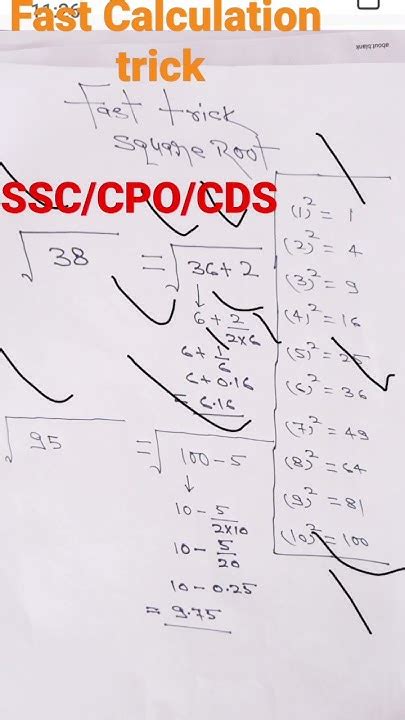 11:06
Fast Calculation
trick
about:blank
Fast trick
Square Root
SSC/CPO/CDS
√38 = √36+2
↓
6 + 2/2×6
6 + 1/6
6 + 0.16
= 6.16
√95 = √100-5
↓
10 - 5/2×10
10 - 5/20
10 - 0.25
= 9.75
(1)² = 1
(2)² = 4
(3)² = 9
(4)² = 16
(5)² = 25
(6)² = 36
(7)² = 49
(8)² = 64
(9)² = 81
(10)² = 100